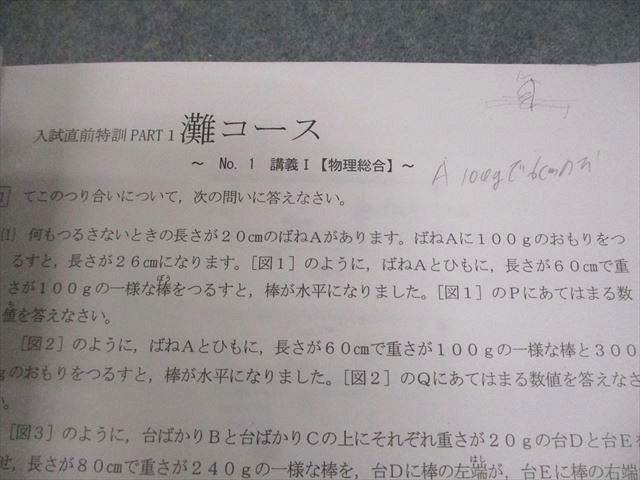 入試直前特訓 PART 1 灘コース
～ No. 1 講義Ⅰ【物理総合】～
A 100gで6cmのび
1 てこのつり合いについて，次の問いに答えなさい。
(1) 何もつるさないときの長さが２０㎝のばねＡがあります。ばねＡに１００ｇのおもりをつ
るすと，長さが２６㎝になります。［図１］のように，ばねＡとひもに，長さが６０㎝で重
ぼう
さが１００ｇの一様な棒をつるすと，棒が水平になりました。［図１］のＰにあてはまる数
値を答えなさい。
［図２］のように，ばねＡとひもに，長さが６０㎝で重さが１００ｇの一様な棒と３００
ｇのおもりをつるすと，棒が水平になりました。［図２］のＱにあてはまる数値を答えなさ
。
［図３］のように，台ばかりＢと台ばかりＣの上にそれぞれ重さが２０ｇの台Ｄと台Ｅを
はし
せ，長さが８０㎝で重さが２４０ｇの一様な棒を，台Ｄに棒の左端が，台Ｅに棒の右端